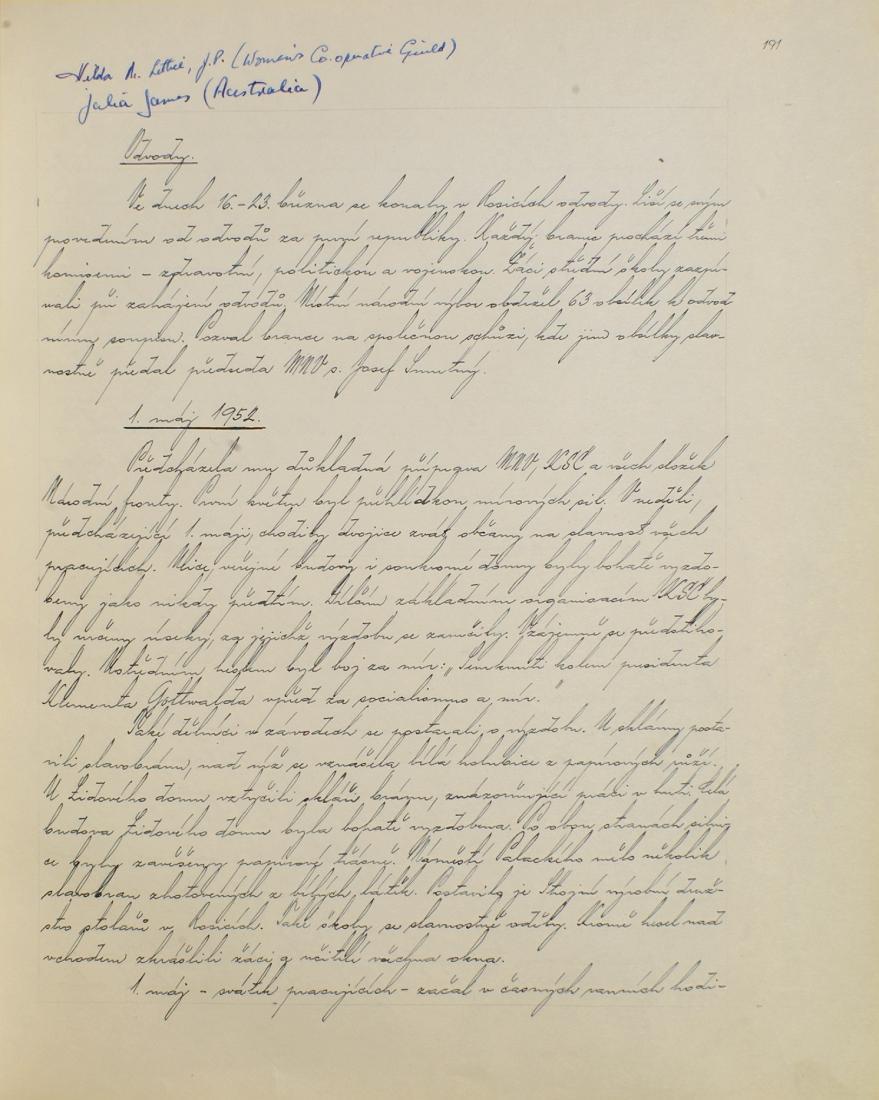 191
Hilda M. Lettice, J.P. (Women's Co-operative Guild)
Julia James (Australia)
Odvody.
Ve dnech 16.-23. března se konaly v Rosicích odvody. Liší se svým
provedením od odvodů za první republiky. Každý branec prochází třemi
komisemi - zdravotní, politickou a vojenskou. Žáci střední školy zazpí-
vali při zahájení odvodů. Místní národní výbor obdržel 63 obsílek k odvod
nímu soupisu. Pozval brance na společnou schůzi, kde jim obálky slav-
nostně předal předseda MNV s. Josef Smutný.
1. máj 1952.
Předcházela mu důkladná příprava MNV, KSČ a všech složek
Národní fronty. První květen byl přehlídkou mírových sil. V neděli,
předcházející 1. máji, chodily dvojice zvát občany na slavnost všech
pracujících. Ulice, veřejné budovy i soukromé domy byly bohatě vyzdo-
beny jako nikdy předtím. Dílčím základním organisacím KSČ by-
ly určeny úseky, za jejichž výzdobu se zaručily. Vzájemně se předstiho-
valy. Ústředním heslem byl boj za mír: „Semknuti kolem presidenta
Klementa Gottwalda vpřed za socialismus a mír."
Také dělníci v závodech se postarali o výzdobu. U sklárny posta-
vili slavobránu, nad níž se vznášela bílá holubice z papírových růží.
U Lidového domu vztyčili skláři bránu, znázorňující práci v huti. Celá
budova Lidového domu byla bohatě vyzdobena. Po obou stranách silni-
ce byly zavěšeny papírové třásně. Náměstí Palackého mělo několik
slavobran zhotovených z bílých látek. Postavilo je Strojní výrobní druž-
stvo stolařů v Rosicích. Také školy se slavnostně oděly. Kromě hesel nad
vchodem zkrášlili žáci a učitelé všechna okna.
1. máj - svátek pracujících - začal v časných ranních hodi-